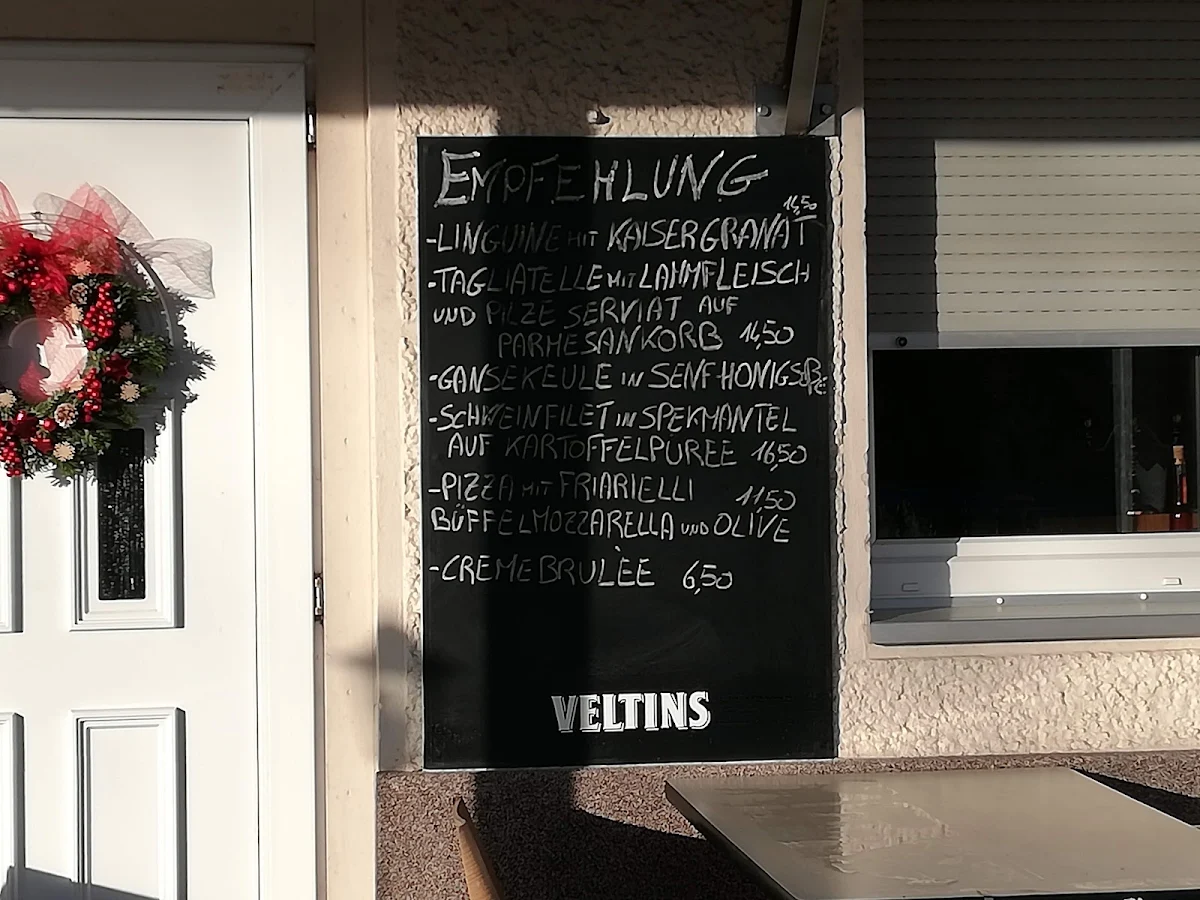 EMPFEHLUNG
14,50
-LINGUINE MIT KAISERGRANAT
-TAGLIATELLE MIT LAHMFLEISCH
UND PILZE SERVIAT AUF
PARMESANKORB 14,50
-GANSEKEULE IN SENFHONIGSOßE
-SCHWEINFILET IN SPEKMANTEL
AUF KARTOFFELPÜREE 16,50
-PIZZA MIT FRIARIELLI 11,50
BÜFFELMOZZARELLA UND OLIVE
-CREME BRULÈE 6,50
VELTINS